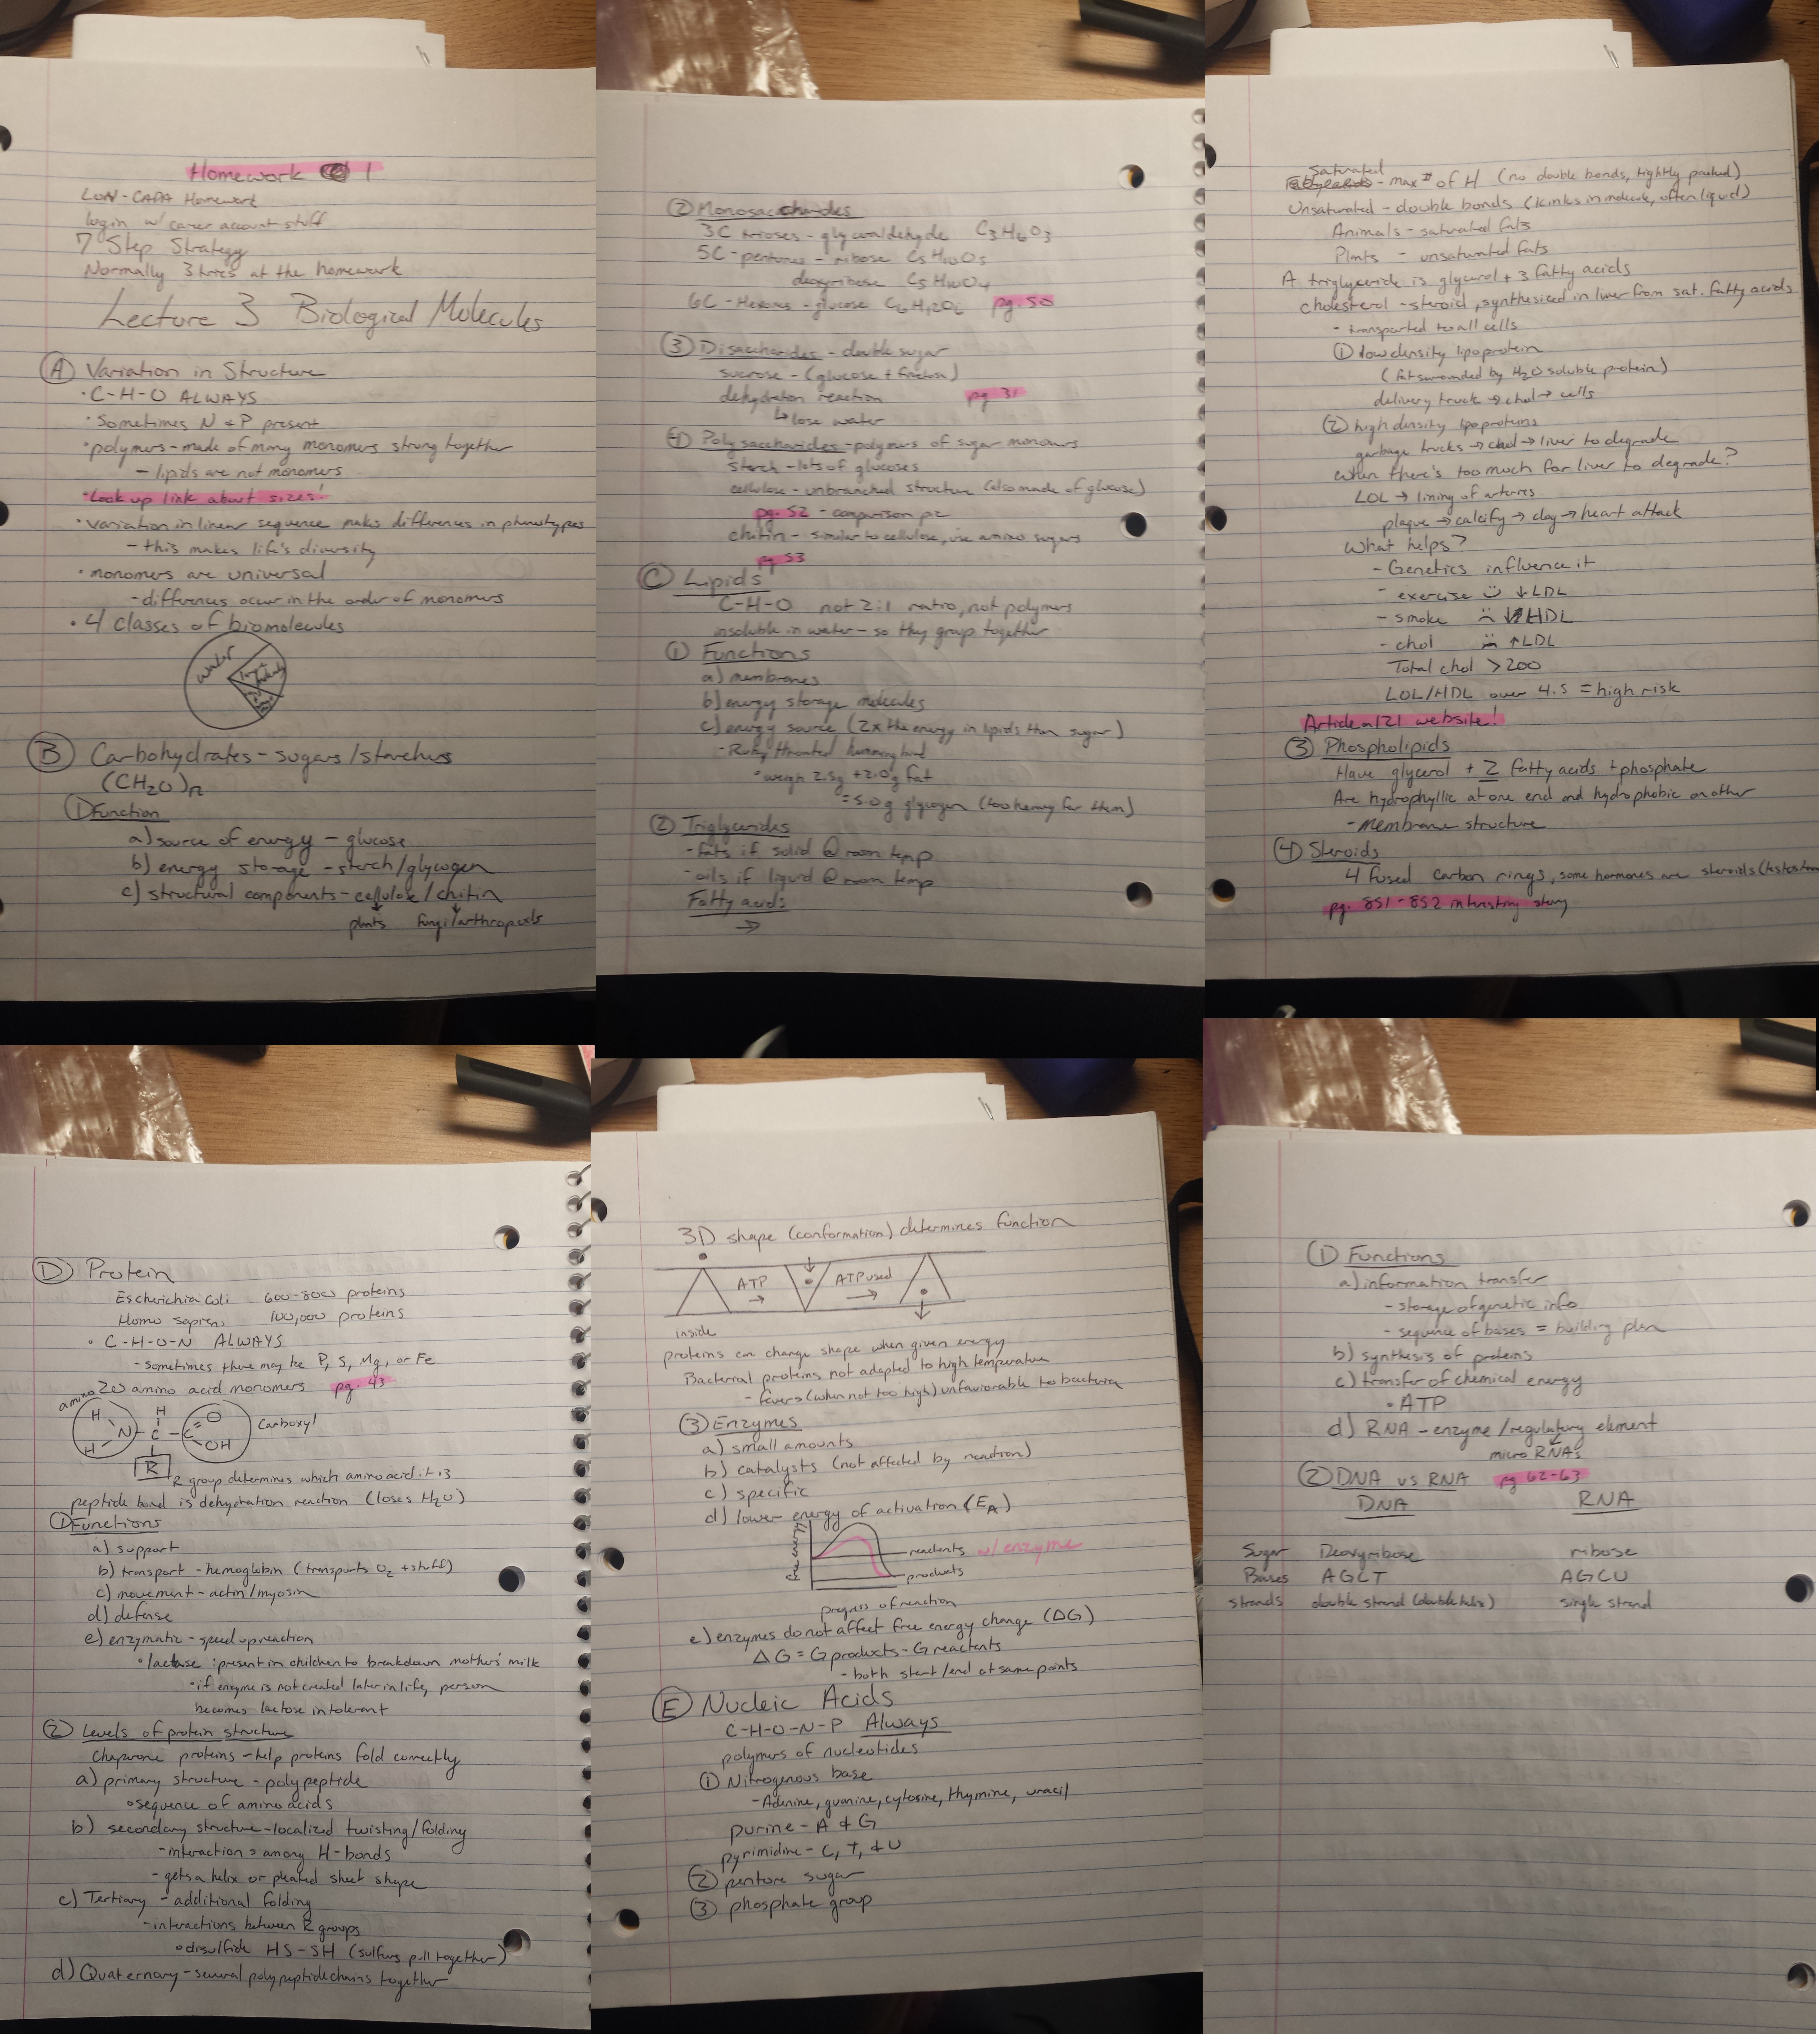 Homework 1
LON-CAPA Homework
login w/ career account stuff
7 Step Strategy
Normally 3 tries at the homework
Lecture 3 Biological Molecules
Ⓐ Variation in Structure
· C-H-O ALWAYS
· Sometimes N + P present
· polymers - made of many monomers strung together
- lipids are not monomers
· Look up link about sizes!
· variation in linear sequence makes differences in phenotypes
- this makes life's diversity
· monomers are universal
- differences occur in the order of monomers
· 4 classes of biomolecules
water
Ⓑ Carbohydrates - sugars/starches
(CH₂O)n
① Function
a) source of energy - glucose
b) energy storage - starch/glycogen
c) structural components - cellulose/chitin
plants fungi/arthropods
② Monosaccharides
3C trioses - glyceraldehyde C₃H₆O₃
5C - pentoses - ribose C₅H₁₀O₅
deoxyribose C₅H₁₀O₄
6C - Hexoses - glucose C₆H₁₂O₆ pg. 50
③ Disaccharides - double sugar
sucrose - (glucose + fructose)
dehydration reaction pg 31
↳ lose water
④ Polysaccharides - polymers of sugar monomers
starch - lots of glucoses
cellulose - unbranched structure (also made of glucose)
pg. 52 - comparison pic
chitin - similar to cellulose, use amino sugars
pg 53
Ⓒ Lipids
C-H-O not 2:1 ratio, not polymers
insoluble in water - so they group together
① Functions
a) membranes
b) energy storage molecules
c) energy source (2x the energy in lipids than sugar)
- Ruby throated humming bird
· weigh 2.5g + 2.0g fat
= 5.0g glycogen (too heavy for them)
② Triglycerides
- fats if solid @ room temp
- oils if liquid @ room temp
Fatty acids
→
Saturated
- max # of H (no double bonds, tightly packed)
Unsaturated - double bonds (kinks in molecule, often liquid)
Animals - saturated fats
Plants - unsaturated fats
A triglyceride is glycerol + 3 fatty acids
cholesterol - steroid, synthesized in liver from sat. fatty acids
- transported to all cells
① low density lipoprotein
(fat surrounded by H₂O soluble protein)
delivery truck → chol → cells
② high density lipoproteins
garbage trucks → chol → liver to degrade
When there's too much for liver to degrade?
LDL → lining of arteries
plaque → calcify → clog → heart attack
What helps?
- Genetics influence it
- exercise ☺ ↓LDL
- smoke ☹ ↓HDL
- chol ☹ ↑LDL
Total chol > 200
LDL/HDL over 4.5 = high risk
Article on 121 website!
③ Phospholipids
Have glycerol + 2 fatty acids + phosphate
Are hydrophyllic at one end and hydrophobic on other
- membrane structure
④ Steroids
4 fused carbon rings, some hormones are steroids (testoster
pg. 851-852 interesting story
Ⓓ Protein
Escherichia Coli 600-800 proteins
Homo sapiens 100,000 proteins
· C-H-O-N ALWAYS
- sometimes there may be P, S, Mg, or Fe
20 amino acid monomers pg. 43
amino
H H O
N - C - C Carboxyl
H OH
R
R group determines which amino acid it is
peptide bond is dehydration reaction (loses H₂O)
① Functions
a) support
b) transport - hemoglobin (transports O₂ + stuff)
c) movement - actin/myosin
d) defense
e) enzymatic - speed up reaction
· lactase: present in children to breakdown mother's milk
· if enzyme is not created later in life, person
becomes lactose intolerant
② Levels of protein structure
Chaperone proteins - help proteins fold correctly
a) primary structure - polypeptide
· sequence of amino acids
b) secondary structure - localized twisting/folding
- interactions among H-bonds
- gets a helix or pleated sheet shape
c) Tertiary - additional folding
- interactions between R groups
· disulfide HS-SH (sulfurs pull together)
d) Quaternary - several polypeptide chains together
3D shape (conformation) determines function
ATP → ATP used →
inside
proteins can change shape when given energy
Bacterial proteins not adapted to high temperature
- fevers (when not too high) unfavorable to bacteria
③ Enzymes
a) small amounts
b) catalysts (not affected by reaction)
c) specific
d) lower energy of activation (EA)
free energy
reactants w/ enzyme
products
progress of reaction
e) enzymes do not affect free energy change (ΔG)
ΔG = G products - G reactants
- both start/end at same points
Ⓔ Nucleic Acids
C-H-O-N-P Always
polymers of nucleotides
① Nitrogenous base
- Adenine, guanine, cytosine, thymine, uracil
purine - A + G
pyrimidine - C, T, + U
② pentose sugar
③ phosphate group
① Functions
a) information transfer
- storage of genetic info
- sequence of bases = building plan
b) synthesis of proteins
c) transfer of chemical energy
· ATP
d) RNA - enzyme/regulatory element
micro RNAs
② DNA vs RNA pg 62-63
DNA RNA
Sugar Deoxyribose ribose
Bases AGCT AGCU
strands double strand (double helix) single strand